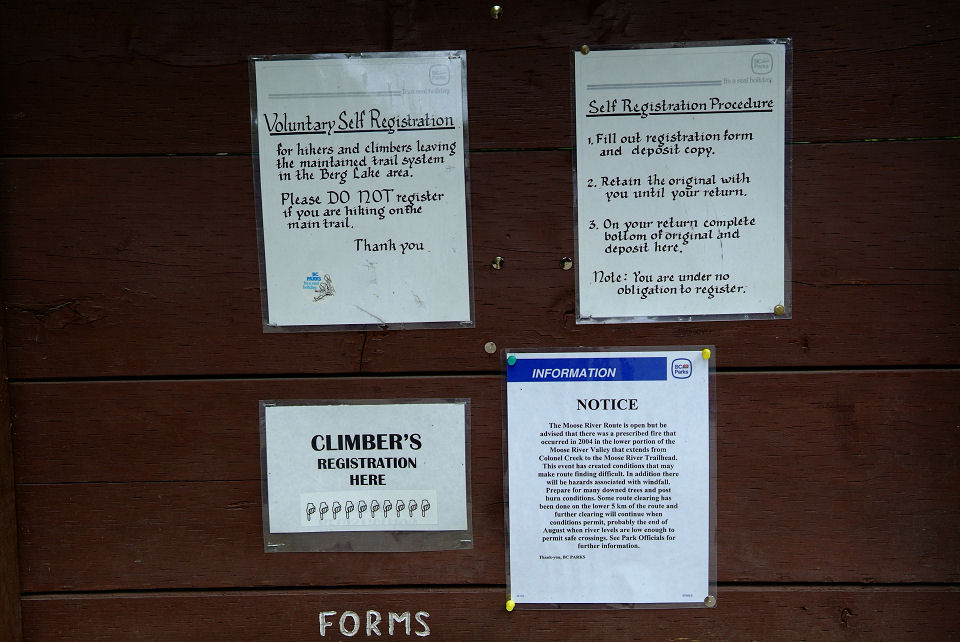 BC Parks
It's a real holiday.
Voluntary Self Registration
for hikers and climbers leaving
the maintained trail system
in the Berg Lake area.
Please DO NOT register
if you are hiking on the
main trail.
Thank you
BC
PARKS
BC Parks
It's a real holiday.
Self Registration Procedure
1. Fill out registration form
and deposit copy.
2. Retain the original with
you until your return.
3. On your return complete
bottom of original and
deposit here.
Note: You are under no
obligation to register.
CLIMBER'S
REGISTRATION
HERE
INFORMATION
BC
Parks
NOTICE
The Moose River Route is open but be
advised that there was a prescribed fire that
occurred in 2004 in the lower portion of the
Moose River Valley that extends from
Colonel Creek to the Moose River Trailhead.
This event has created conditions that may
make route finding difficult. In addition there
will be hazards associated with windfall.
Prepare for many downed trees and post
burn conditions. Some route clearing has
been done on the lower 5 km of the route and
further clearing will continue when
conditions permit, probably the end of
August when river levels are low enough to
permit safe crossings. See Park Officials for
further information.
Thank-you, BC PARKS
FORMS